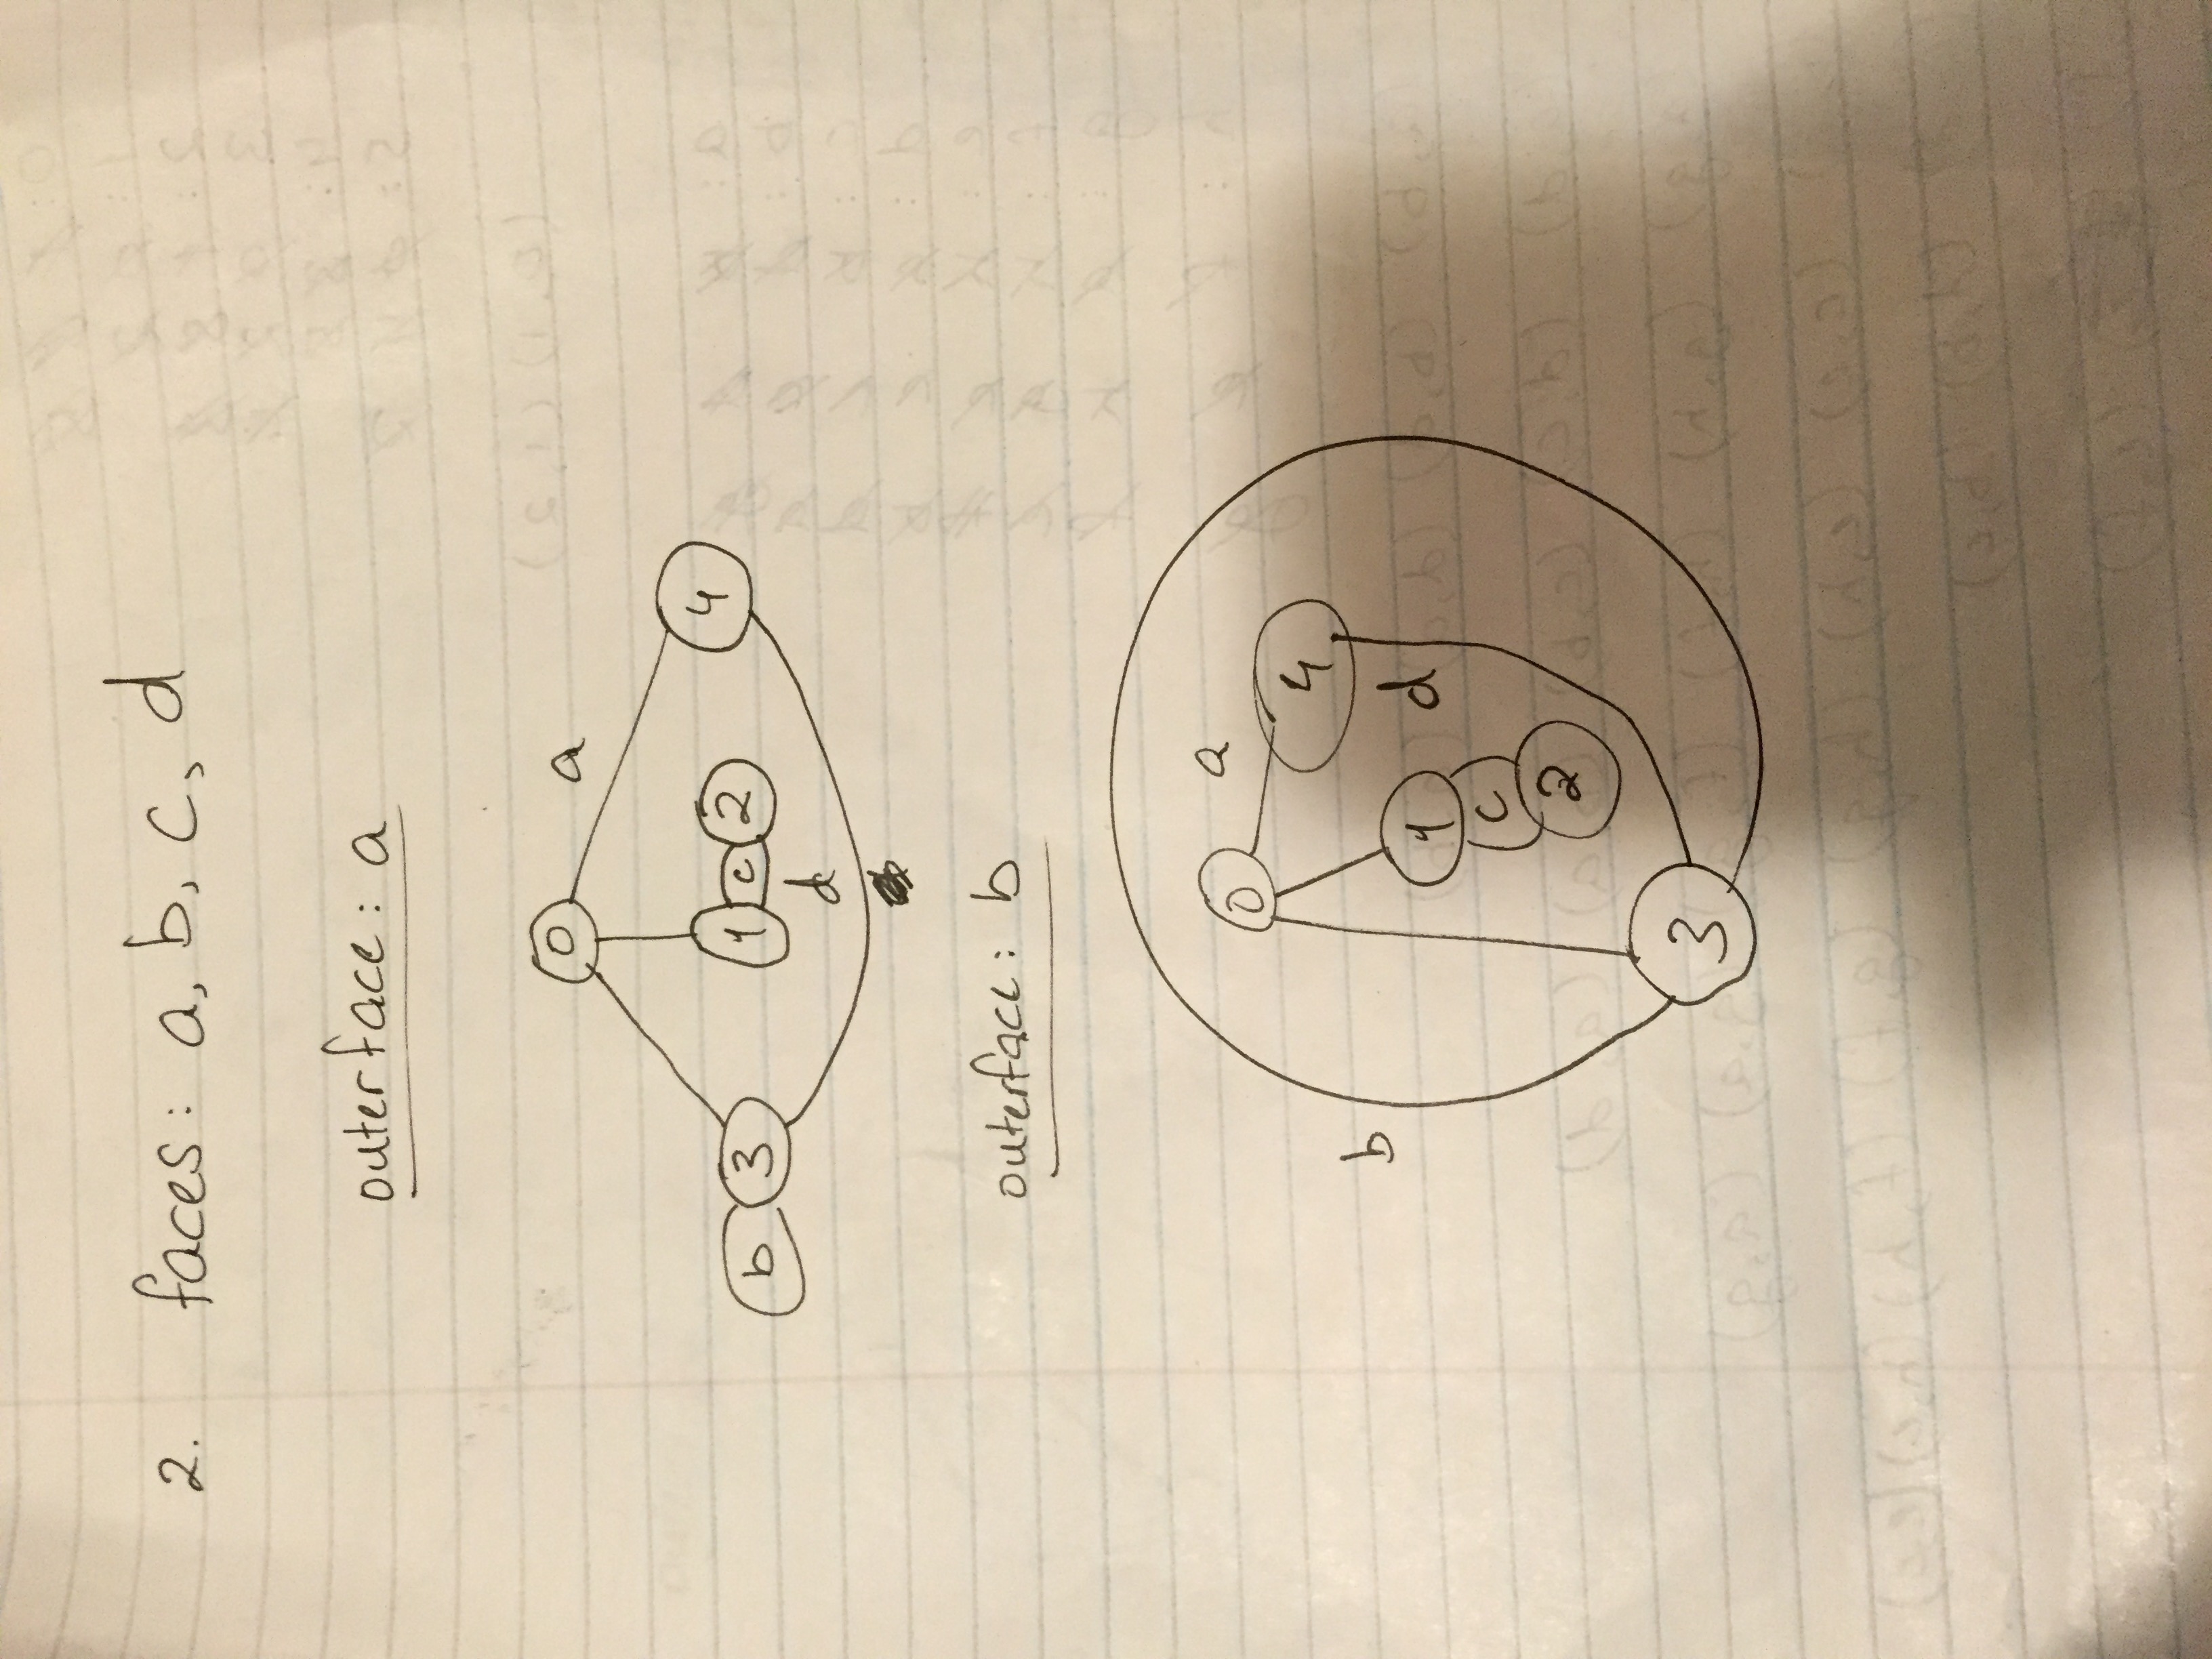 2. faces: a, b, c, d
outerface: a
0 a
b 3 1 c 2 4
d
outerface: b
0 a
4
b 1 d
c
2
3